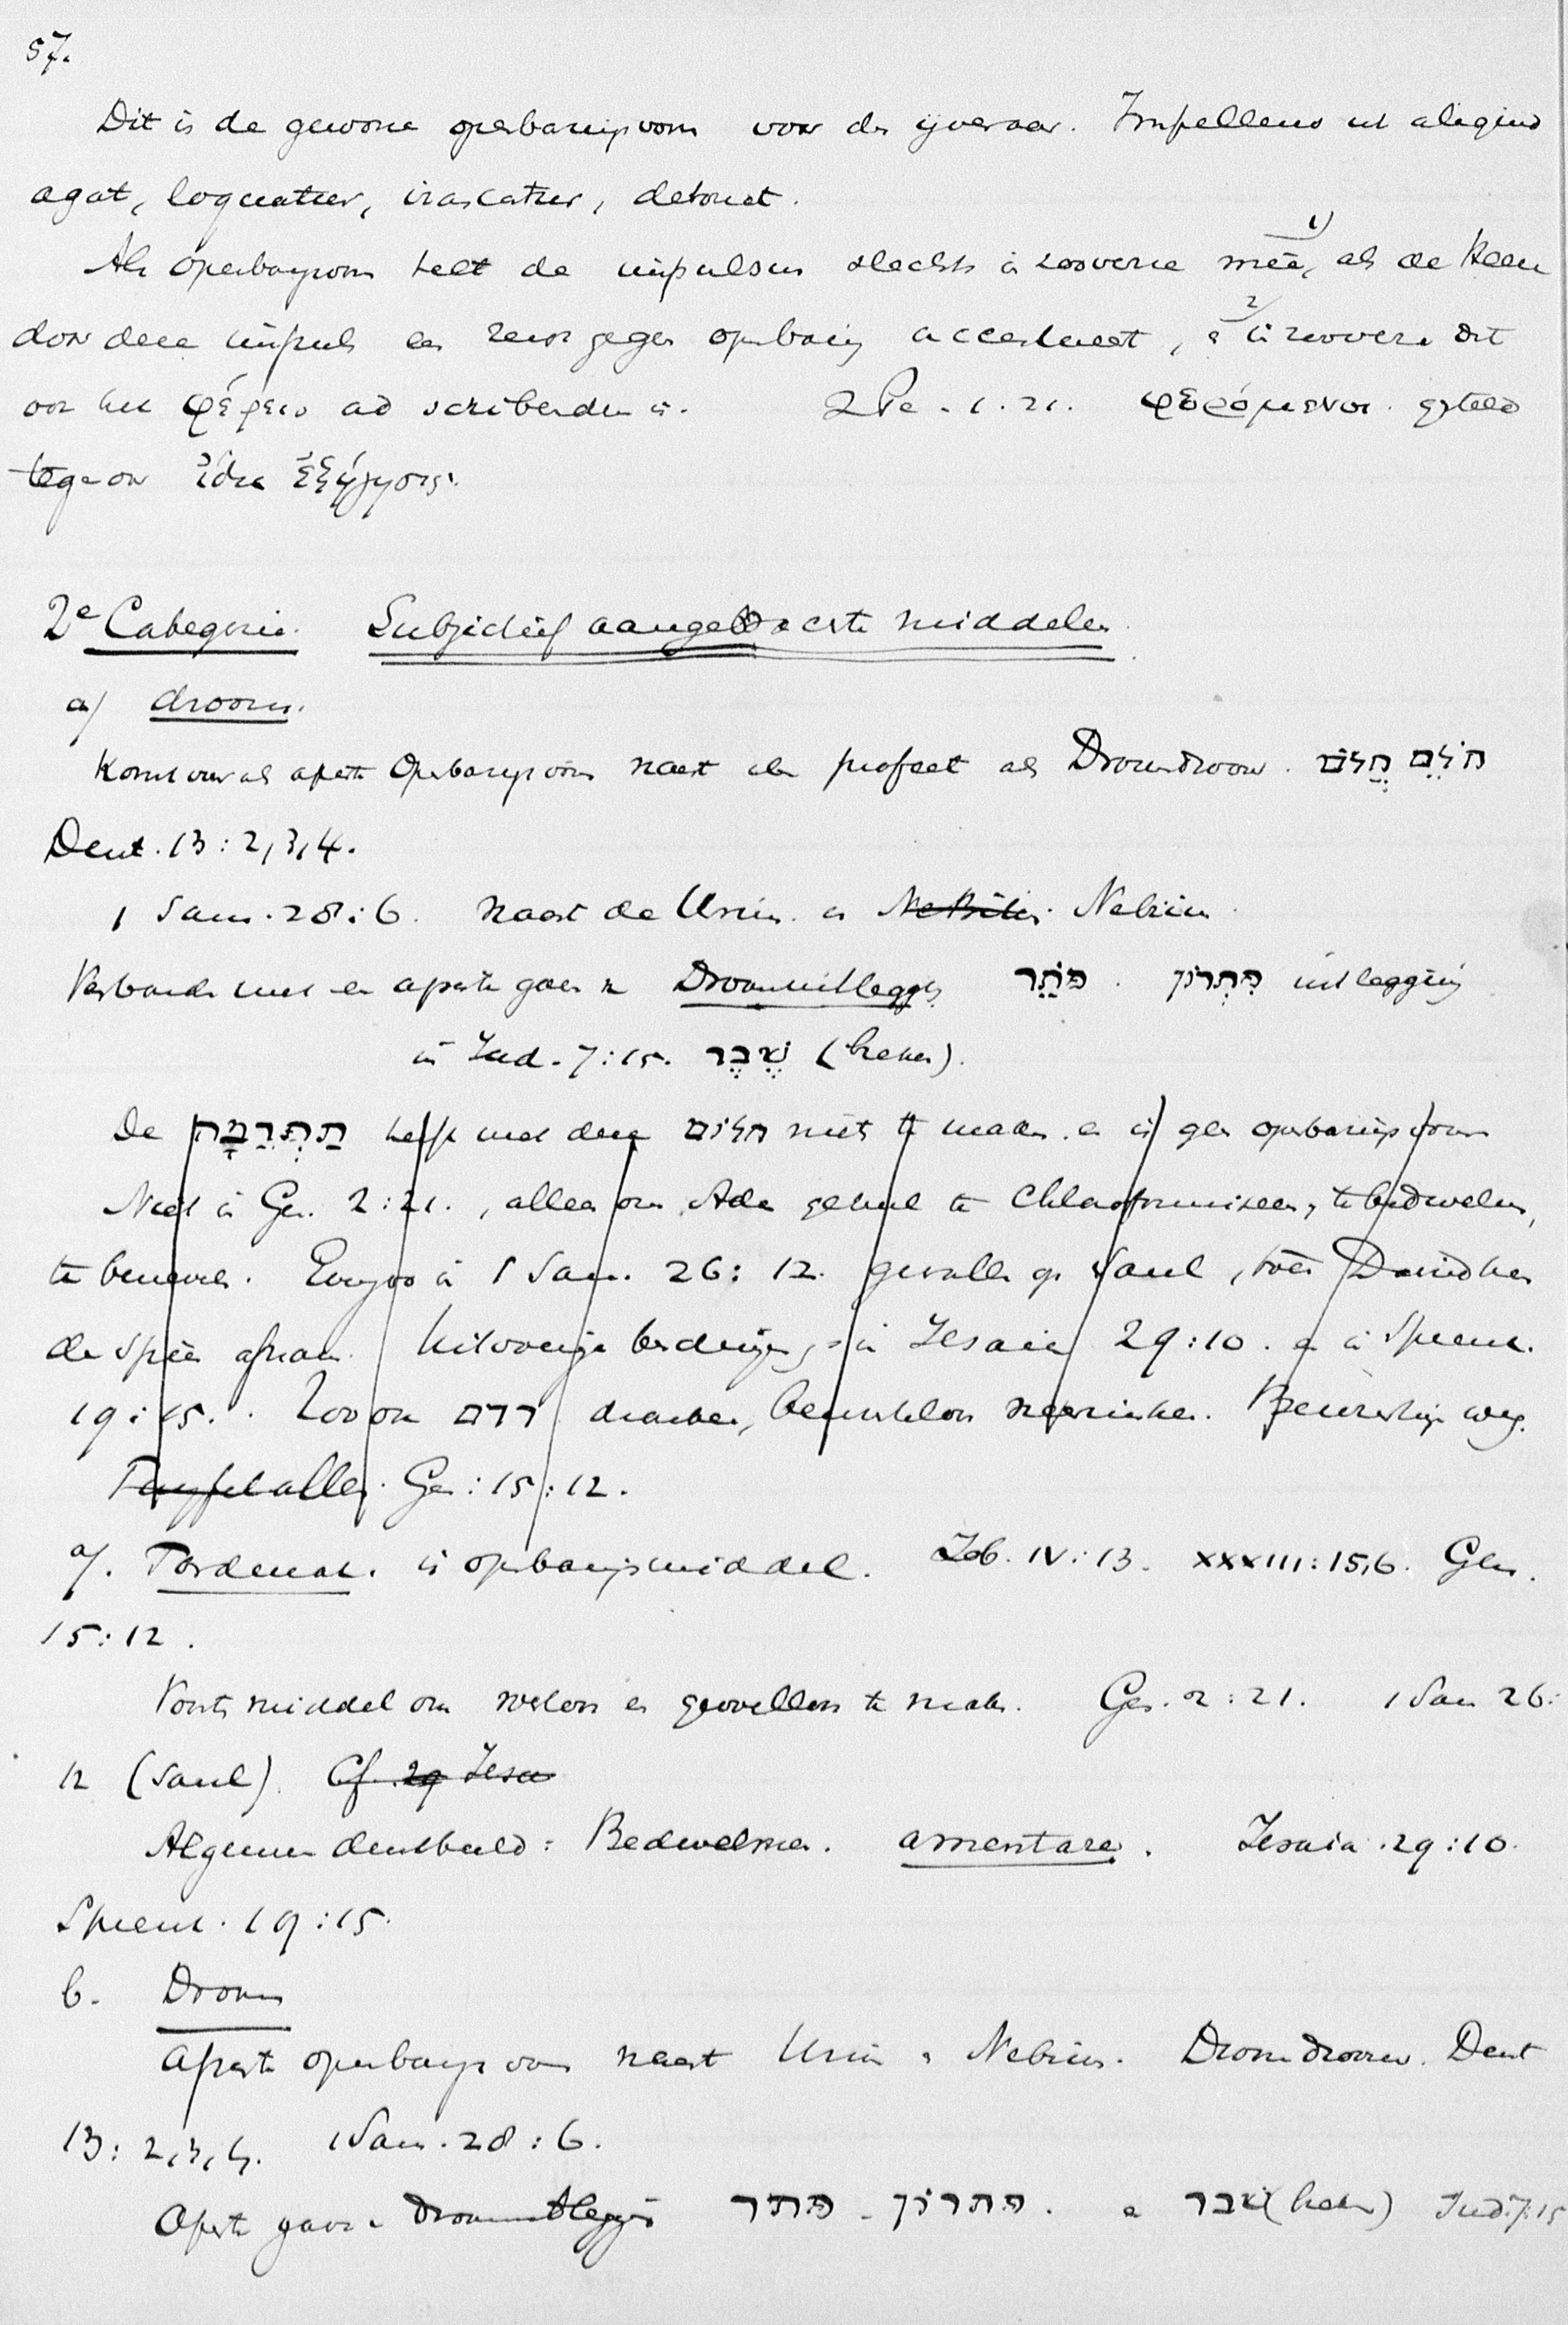 57.
Dit is de gewone openbaringsvorm voor den ijveraar. Impellens ut aliquid
agat, loquatur, irascatur, detonet.
Als openbaringsvorm telt de impulsus slechts in zooverre meê, 1) als de Heer
door deze impuls een zeer gegeven openbaring accentueert, 2) en in zooverre dit
ook het φέρειν ad scribendum is. 2 Pe. 1.21. φερόμενοι gesteld
tegenover ἰδία ἐξήγησις.
2e Categorie. Subjectief aangebrachte middelen.
a/ droom.
Komt voor als aparte Openbaringsvorm naast den profeet als Droomdroomer. חֹלֵם חֲלוֹם
Deut. 13:2,3,4.
1 Sam. 28:6. naast de Urim en Nebiim. Nebiim.
Verbonden met een aparte gave van Droomuitlegging פֹּתֵר. פִּתְרוֹן uitlegging
in Iud. 7:15. שֶׁבֶר (breken).
De תַּרְדֵּמָה heeft met deze חלום niets te maken en is geen openbaringsvorm
Niet in Gen. 2:21., alleen om Adam geheel te chloroformiseeren, te bedwelmen,
te benemen. Evenzoo in 1 Sam. 26:12. gevallen op Saul, toen David hem
de spies afnam. in Iesaia 29:10. en in Spreuk.
19:15. Zoo ook רדם bewusteloos neerzinken. weg.
Twijfelallen. Gen:15:12.
a/. Tardemah. is openbaringsmiddel. Iob. IV:13. XXXIII:15,6. Gen.
15:12.
Voorts middel om weloos en gevoelloos te maken. Gen. 2:21. 1 Sam 26:
12 (Saul). Cf. 29 Iesa
Algemeen denkbeeld: Bedwelmen. amentare. Iesaia. 29:10.
Spreuk. 19:15.
b. Droom
Aparte openbaringsvorm naast Urim en Nebiim. Droomdroomer. Deut
13:2,3,4. 1 Sam. 28:6.
Aparte gave van droomuitlegging פתר. פתרון. en שׁבר (breken) Iud.7:15